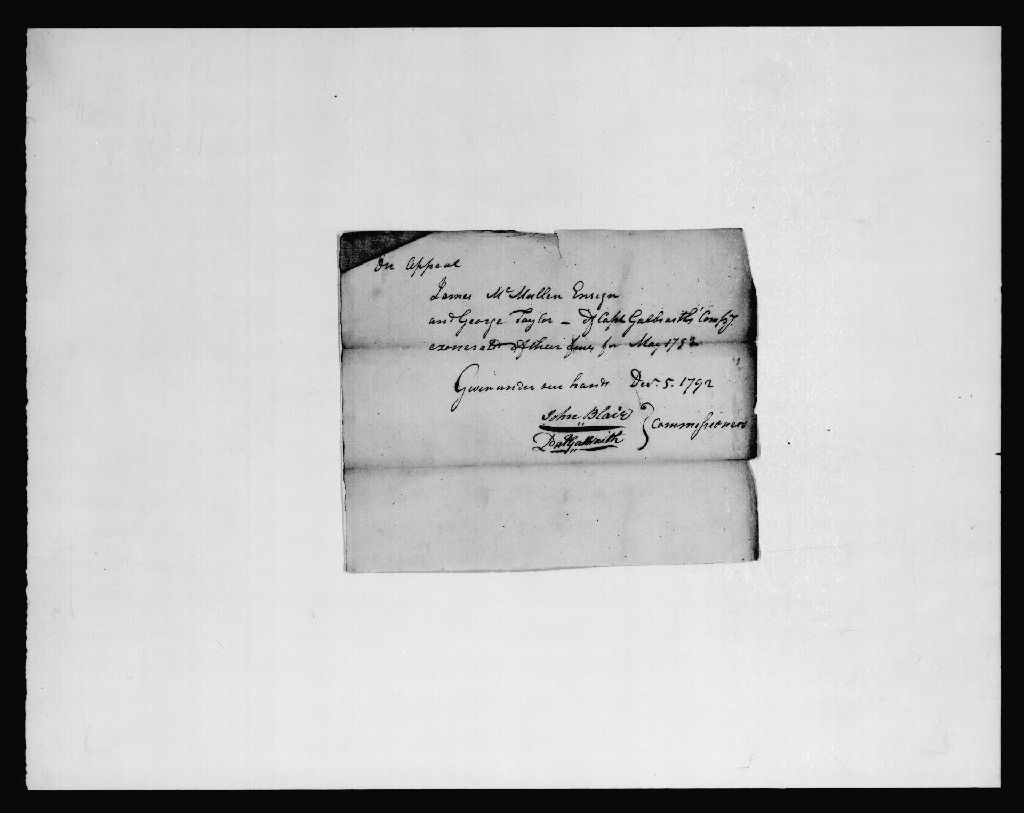 On Appeal
James McMullen Ensign
and George Taylor – of Capt. Galbraith's Compy.
exonerated of their fines for May 1792
Given under our hands Decr. 5. 1792
John Blair } Commissioners
Galbraith